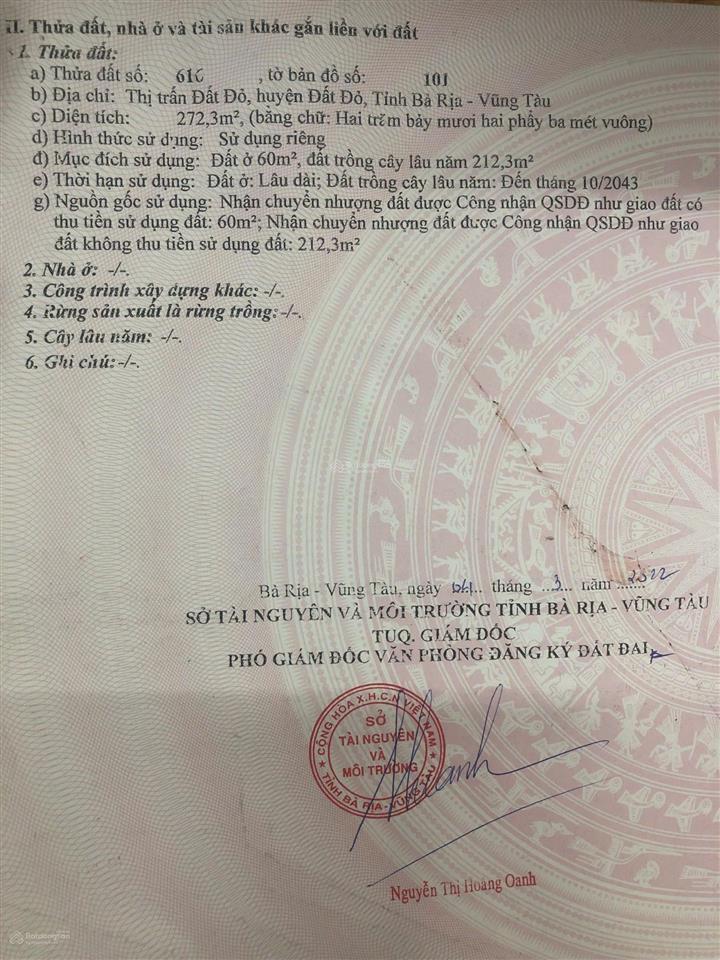 II. Thửa đất, nhà ở và tài sản khác gắn liền với đất
1. Thửa đất:
a) Thửa đất số: 610 , tờ bản đồ số: 101
b) Địa chỉ: Thị trấn Đất Đỏ, huyện Đất Đỏ, Tỉnh Bà Rịa - Vũng Tàu
c) Diện tích: 272,3m², (bằng chữ: Hai trăm bảy mươi hai phẩy ba mét vuông)
d) Hình thức sử dụng: Sử dụng riêng
đ) Mục đích sử dụng: Đất ở 60m², đất trồng cây lâu năm 212,3m²
e) Thời hạn sử dụng: Đất ở: Lâu dài; Đất trồng cây lâu năm: Đến tháng 10/2043
g) Nguồn gốc sử dụng: Nhận chuyển nhượng đất được Công nhận QSDĐ như giao đất có
thu tiền sử dụng đất: 60m²; Nhận chuyển nhượng đất được Công nhận QSDĐ như giao
đất không thu tiền sử dụng đất: 212,3m²
2. Nhà ở: -/-.
3. Công trình xây dựng khác: -/-.
4. Rừng sản xuất là rừng trồng: -/-.
5. Cây lâu năm: -/-.
6. Ghi chú: -/-.
Bà Rịa - Vũng Tàu, ngày tháng 3 năm 2022
SỞ TÀI NGUYÊN VÀ MÔI TRƯỜNG TỈNH BÀ RỊA - VŨNG TÀU
TUQ. GIÁM ĐỐC
PHÓ GIÁM ĐỐC VĂN PHÒNG ĐĂNG KÝ ĐẤT ĐAI
CỘNG HÒA X.H.C.N VIỆT NAM
SỞ
TÀI NGUYÊN
VÀ
MÔI TRƯỜNG
TỈNH BÀ RỊA - VŨNG TÀU
Nguyễn Thị Hoàng Oanh
Batdongsan